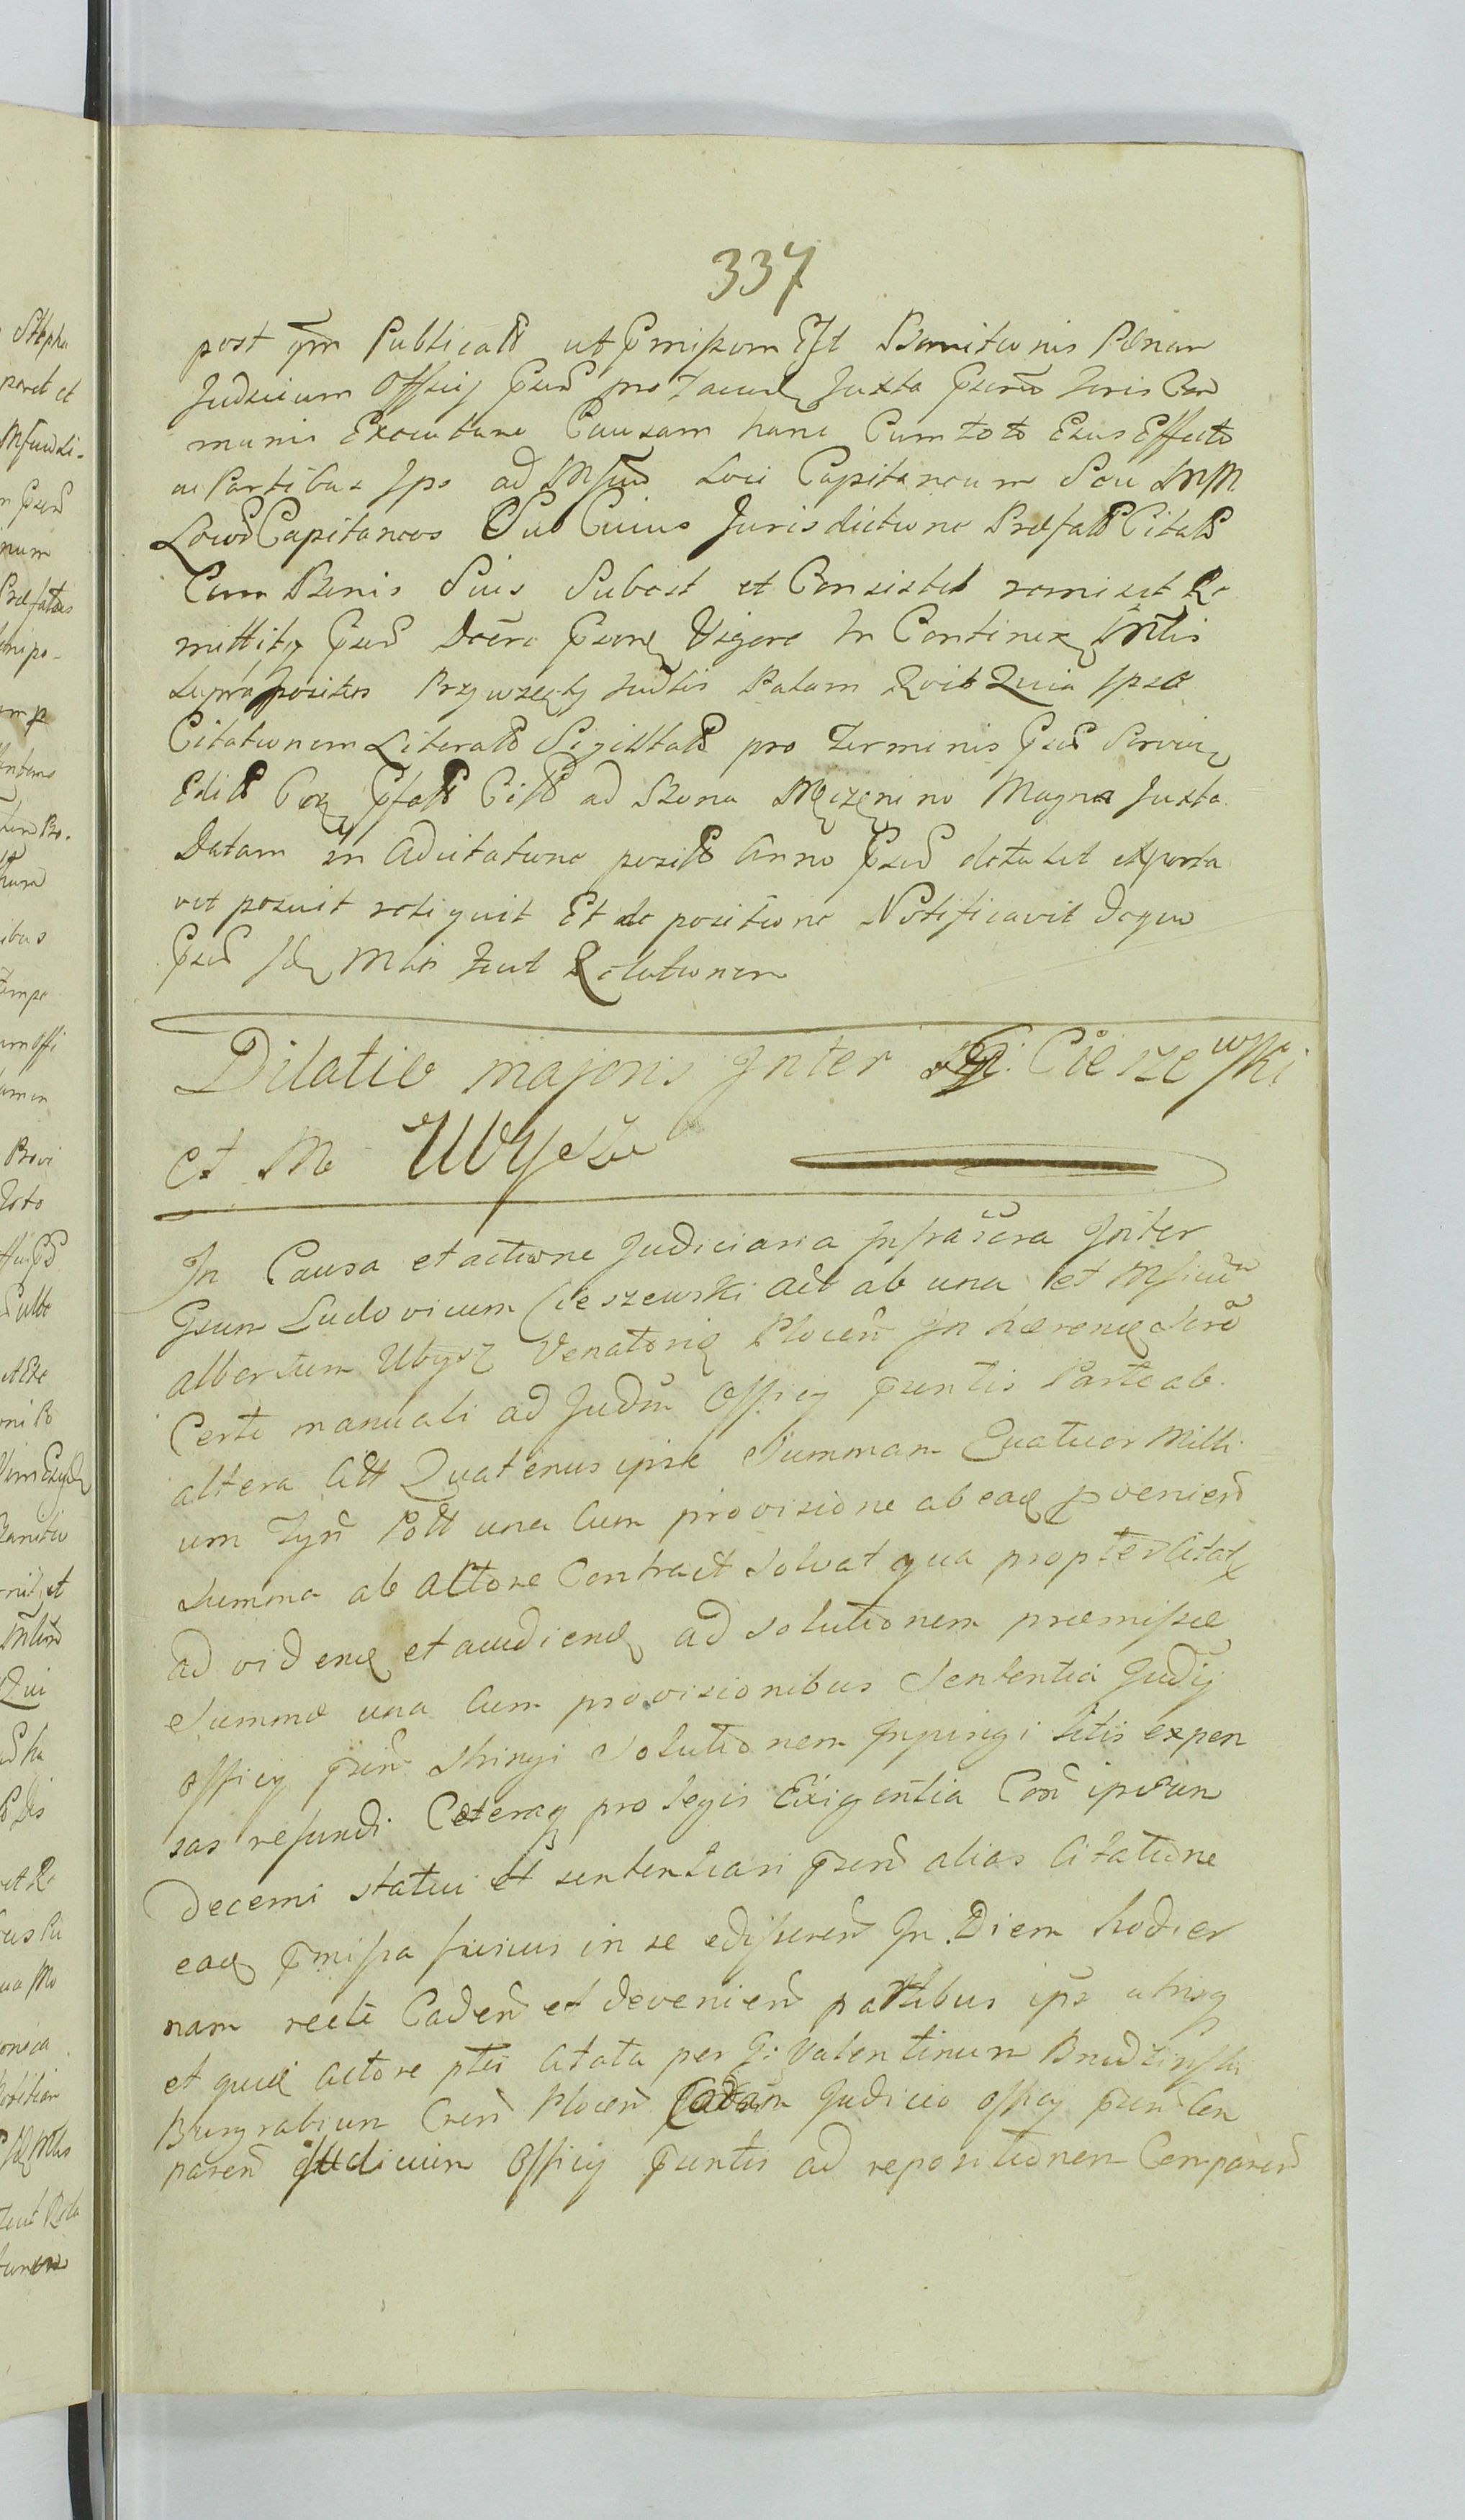 337
post qm Publicatt ut pmissum Est Bannitionis Pænam
Judicium Officij Psen pro Juxta Psens Juris Com
munis Executione Causam hanc Cum toto Eius Effectu
ac Partibus Ips ad Mfcum Loci Capitaneum Seu MM
Locor Capitaneos Sub Cuius Jurisdictione Præfatt Citatt
Cum Bonis Suis Subest et Consistet remisit Re
mittitq Psen Decreti Vigore In Continen Mtlis
supra positis Przywzęty Judtis Palam Roit Quia Ipse
Citationem Literatt Sigillatt pro Terminis Psen
Editt pfatt Citt ad Bona Męczenino Magna Juxta
Datam in Adcitatione positt Anno Psen exporta
vit posuit reliquit Et de positione Notificavit deque
Psen Mtis fecit Relationem
Dilatio majoris Inter G. Cieszewski
et M Ubysz
In Causa et actione Judiciaria infrascra Inter
Gsum Ludovicum Cieszewski act ab una et Mficum
Albertum Ubysz Venatorid Plocen In hærend
Certi manuali ad Judm Officij psentis Parte ab
altera Citt Quatenus ipse Summam Quatuor Milli
um Tyn Poll una Cum provisione ab ead provenien
summa ab Actore Contract solvat qua propter Citat
ad vidend et audiend ad solutionem præmissæ
Summæ una Cum provisionibus Sententia Judij
Officij psen stringi Solutionem Inpingi litis expen
sas refundi Cæteraq pro legis Exigentia Con ipsum
Decerni statui et sententiari psen alias Citatione
ead pmissa fusius in se ediseren In Diem hodier
nam recte Caden et devenien partibus ips utrisq
et quid Actore ptei Citata per G: Valentinum Brudzinski
Burgrabium Cren Plocen Coram Judicio Officij psen Com
paren Judicium Officij psentis ad repositionem Comparen